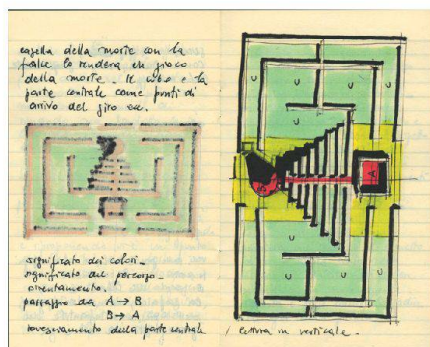 casella della morte con la
falce lo renderà un gioco
della morte. Il cubo e la
parte centrale come punti di
arrivo del giro
significato dei colori -
significato del percorso -
orientamento -
passaggio da A → B
B → A
rovesciamento della parte centrale
U
U
U
U
U
U
U
A
B
lettura in verticale.